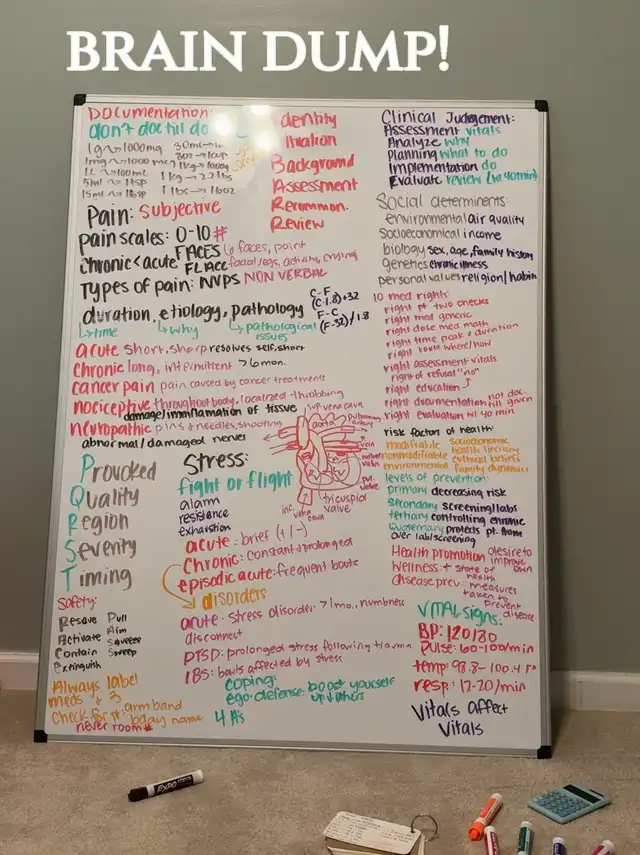 BRAIN DUMP!
Documentation:
don't doc till do
1g → 1000mg
1mg → 1000 mcg
5ml → 1tsp
15ml → 1tbsp
1kg → 2.2 lbs
1 lbs → 16oz
dentity
ituation
Background
Assessment
Recommon.
Review
Pain: subjective
pain scales: 0-10 #
FACES 6 faces, point
chronic < acute FLACC facial, legs, activity, crying
Types of pain: NVPS NON VERBAL
duration, etiology, pathology
↳ time ↳ why ↳ pathological issues
C-F
(C·1.8)+32
F-C
(F-32)/1.8
acute short, sharp resolves self, short
chronic long, intermittent >6mon.
cancer pain pain caused by cancer treatments
nociceptive throughout body, localized - throbbing
damage/immflamation of tissue
neuropathic pins & needles, shooting
abnormal/damaged nerves
Provoked
Quality
Region
Severity
Timing
Stress:
fight or flight
alarm
resistance
exhaustion
acute = brief (+/-)
Chronic: constant & prolonged
episodic acute: frequent bouts
disorders
acute - stress disorder >1mo., numbness
disconnect
PTSD: prolonged stress following trauma
IBS: bowls affected by stress
coping:
ego-defense: boost yourself
up & others
4 A's
Safety:
Rescue Pull
Activate Aim
Contain Squeeze
Extinguish Sweep
Always label
meds + 3
check for pt. arm band
bday name
never room #
sup vena cava
aorta
pulmonary
artery
RV
LV
tricuspid
valve
inf.
vena
cava
Clinical Judgement:
Assessment vitals
Analyze why
Planning what to do
Implementation do
Evaluate review (w 40 min)
Social determinents:
environmental air quality
Socioeconomical income
biology sex, age, family history
genetics chronic illness
personal values religion/habits
10 med rights:
right pt two checks
right med generic
right dose med math
right time peak & duration
right route where/how
right assessment vitals
right of refusal "no"
right education
right documentation not doc. till given
right evaluation w/ 40 min
risk factors of health:
modifiable
nonmodifiable
environmental
socioeconomic
health literacy
cultural beliefs
family dynamics
levels of prevention:
primary decreasing risk
Secondary screening/labs
tertiary controlling chronic
Quaternary protects pt. from
over lab/screening
Health promotion desire to improve
wellness + state of own health
disease prev. measures
taken to
prevent
disease
VITAL SIGNS:
BP: 120/80
Pulse: 60-100/min
temp: 98.8-100.4 F°
resp: 12-20/min
Vitals Affect
Vitals
EXPO